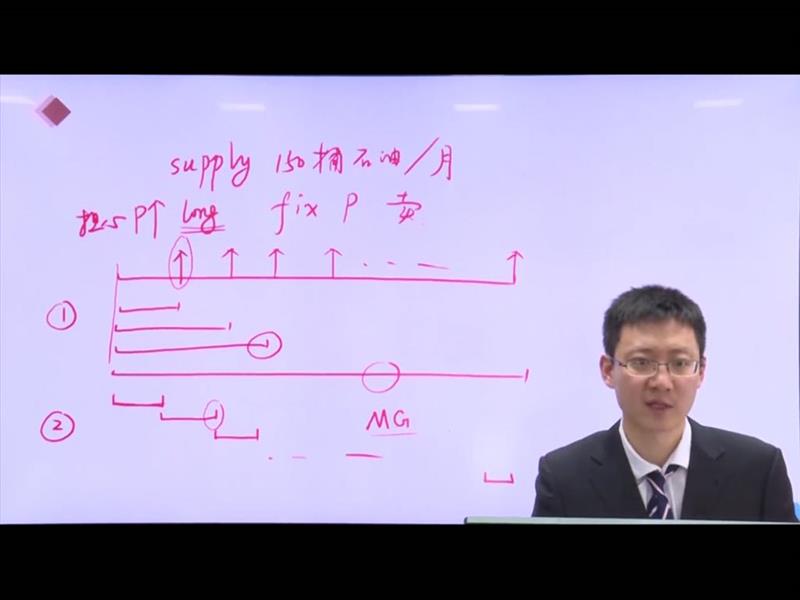 supply 150桶石油/月
担心P↑ long fix P 卖
①
② MG